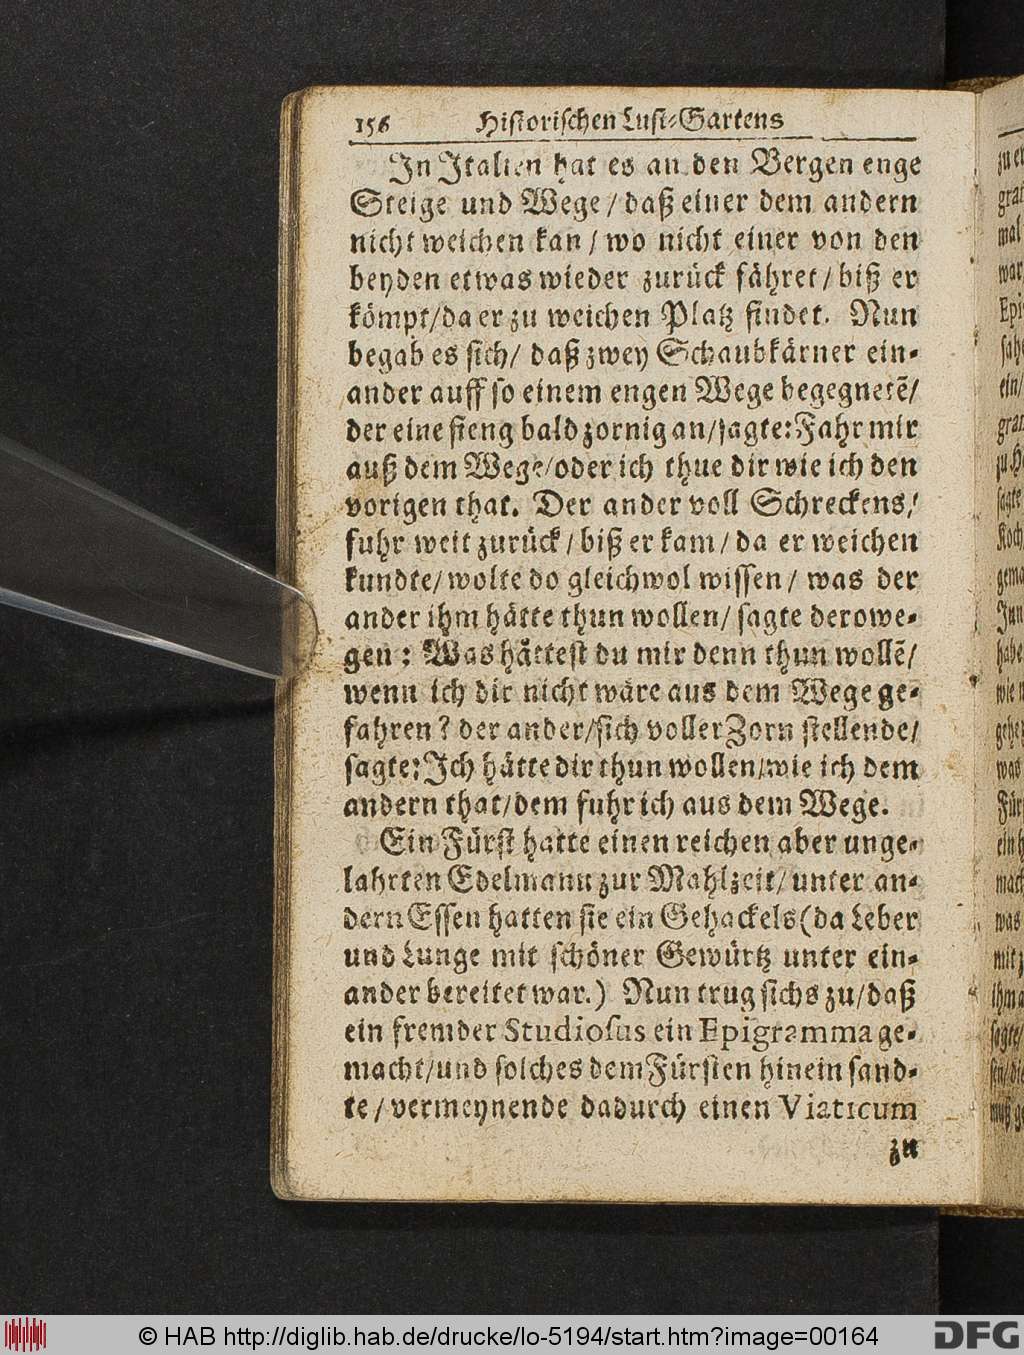 156 Historischen Lust-Gartens
In Italien hat es an den Bergen enge
Steige und Wege/ daß einer dem andern
nicht weichen kan/ wo nicht einer von den
beyden etwas wieder zurück fähret/ biß er
kömpt/ da er zu weichen Platz findet. Nun
begab es sich/ daß zwey Schaubkärner ein-
ander auff so einem engen Wege begegnetẽ/
der eine fieng bald zornig an/ sagte: Fahr mir
auß dem Wege/ oder ich thue dir wie ich den
vorigen that. Der ander voll Schreckens/
fuhr weit zurück/ biß er kam/ da er weichen
kundte/ wolte do gleichwol wissen/ was der
ander ihm hätte thun wollen/ sagte derowe-
gen: Was hättest du mir denn thun wollẽ/
wenn ich dir nicht wäre aus dem Wege ge-
fahren? der ander/ sich voller Zorn stellende/
sagte: Ich hätte dir thun wollen/ wie ich dem
andern that/ dem fuhr ich aus dem Wege.
Ein Fürst hatte einen reichen aber unge-
lahrten Edelmann zur Mahlzeit/ unter an-
dern Essen hatten sie ein Gehackels (da Leber
und Lunge mit schöner Gewürtz unter ein-
ander bereitet war.) Nun trug sichs zu/ daß
ein fremder Studiosus ein Epigramma ge-
macht/ und solches dem Fürsten hinein sand-
te/ vermeynende dadurch einen Viaticum
zu
© HAB http://diglib.hab.de/drucke/lo-5194/start.htm?image=00164
DFG